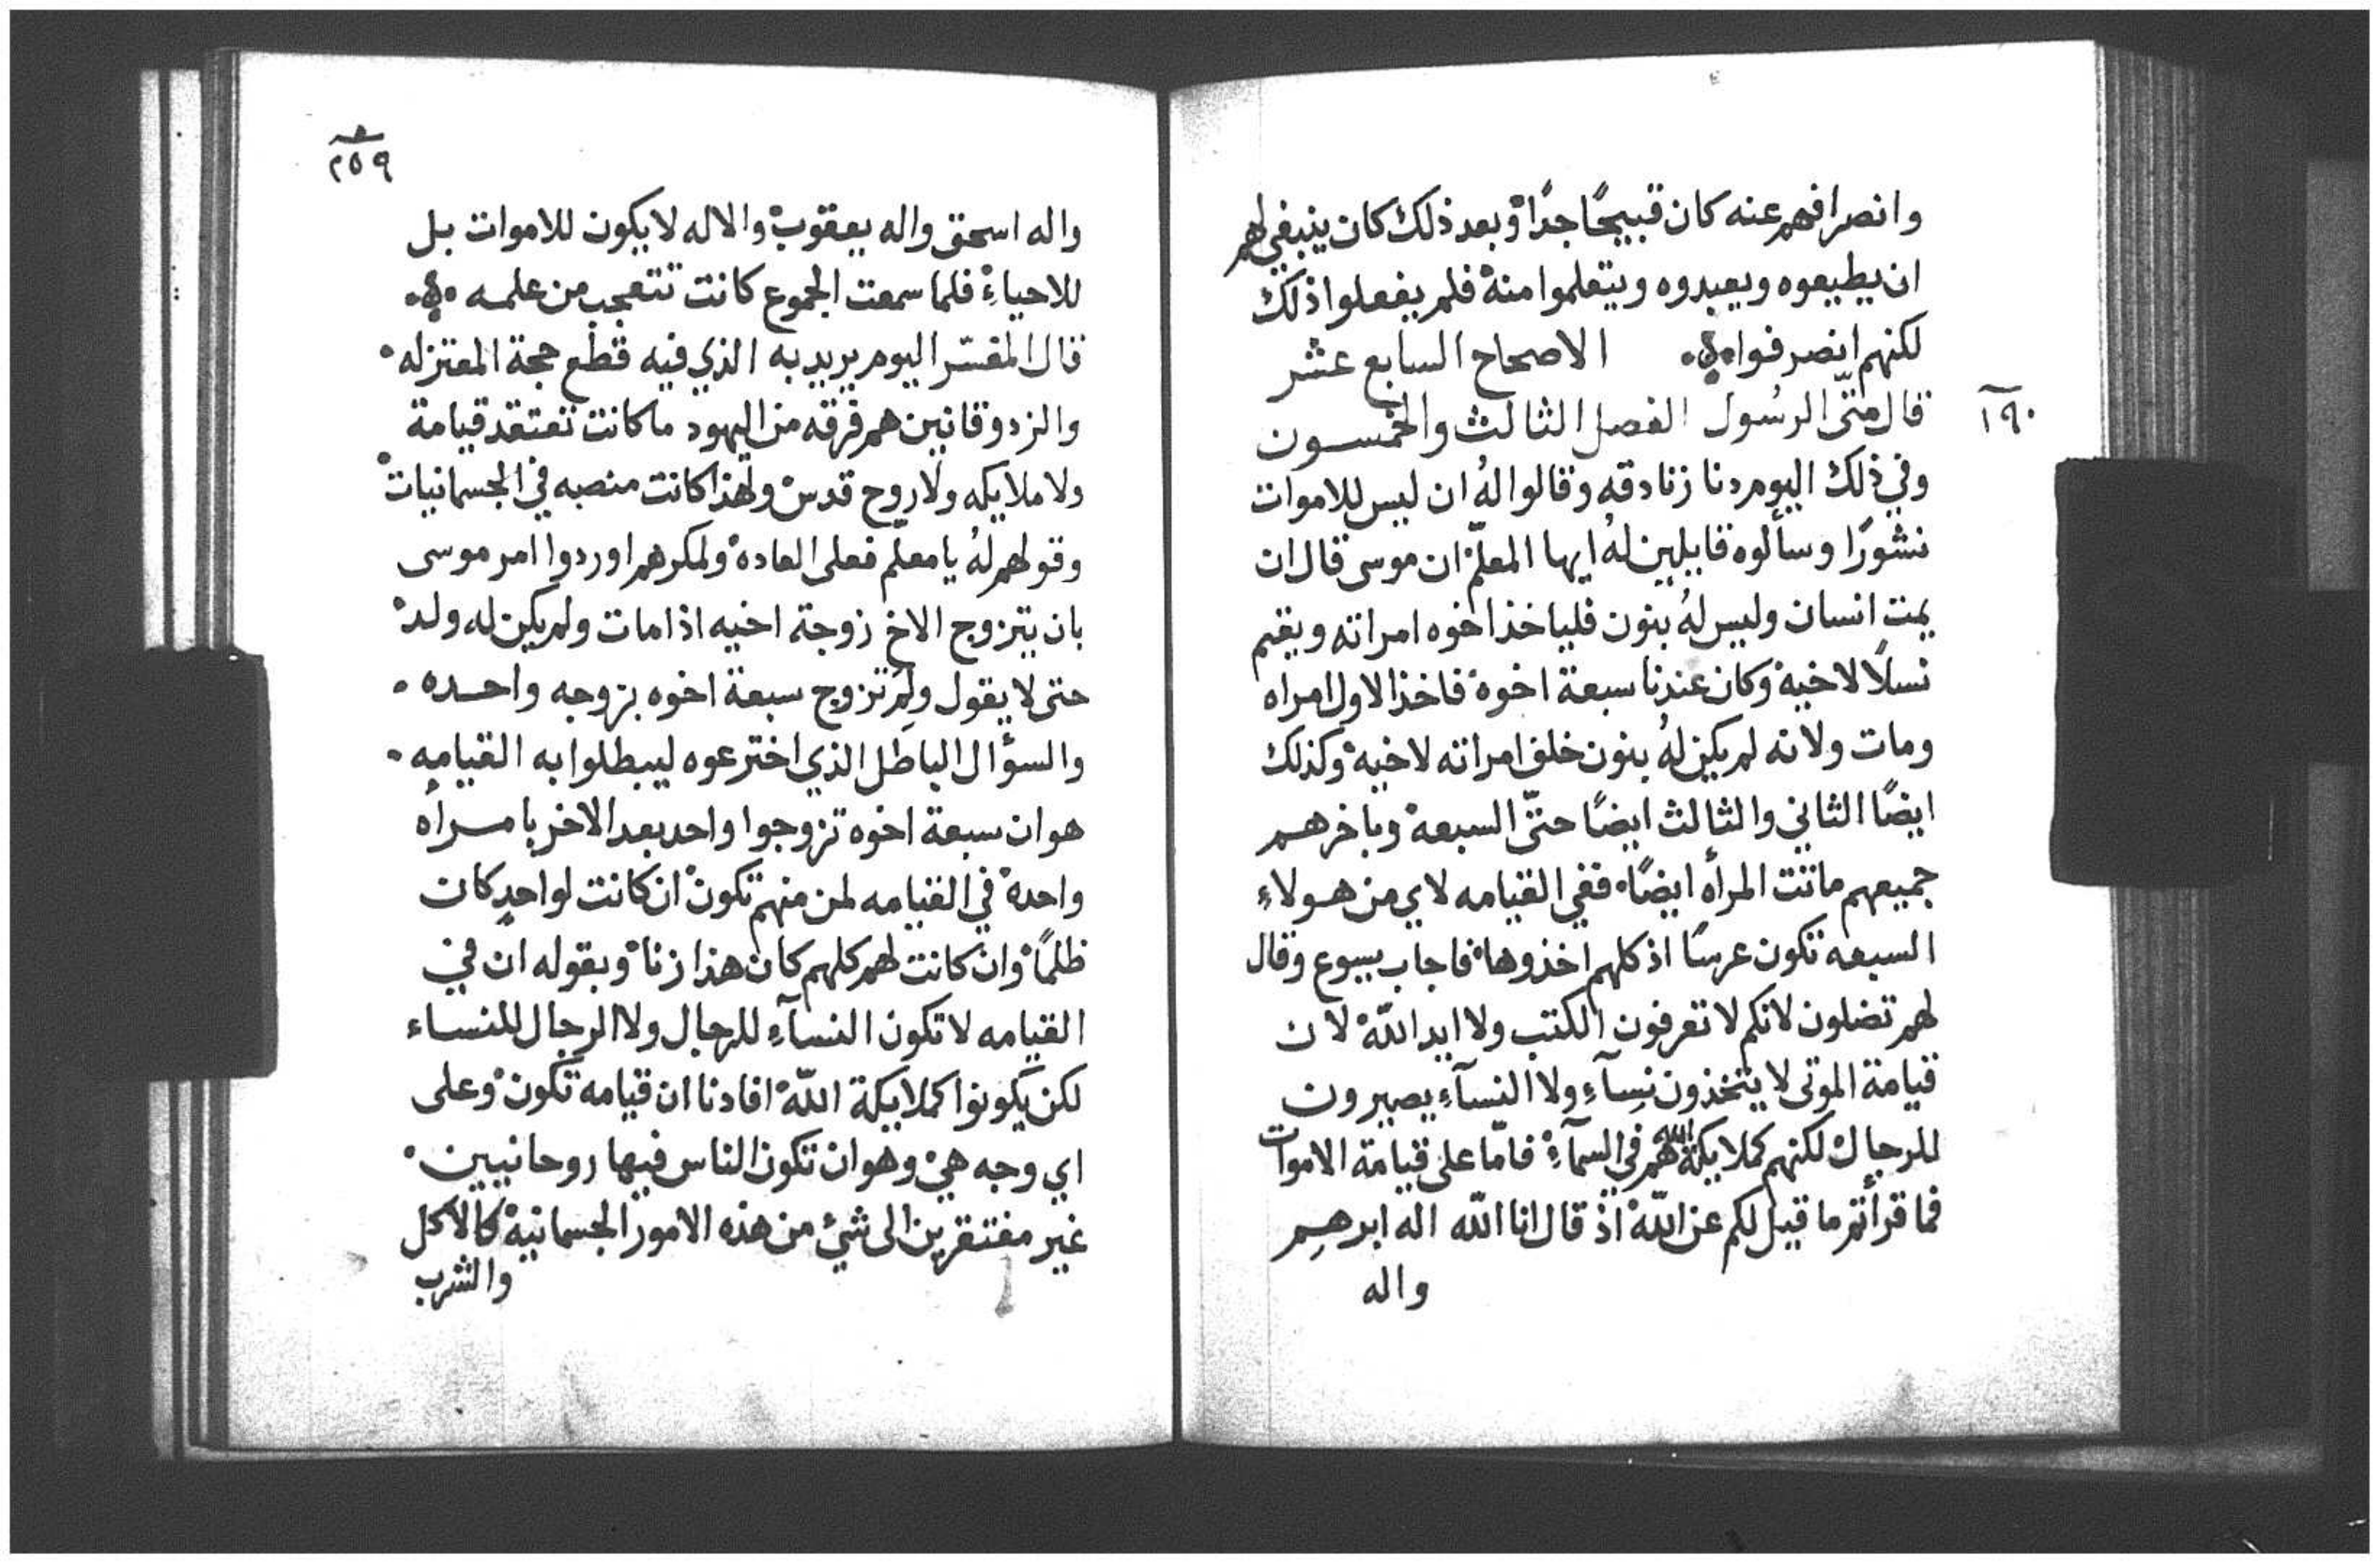 وانصرافهم عنه كان قبيحًا جدًا وبعد ذلك كان ينبغي لهم
ان يطيعوه ويعبدوه ويتعلموا منه فلم يفعلوا ذلك
لكنهم انصرفوا الاصحاح السابع عشر
١٩٠
قال متّى الرسُول الفصل الثالث والخمسون
وفي ذلك اليوم دنا زنادقه وقالوا لهُ ان ليس للاموات
نشورًا وسألوه قايلين لهُ ايها المعلّم ان موسى قال ان
يمت انسان وليس لهُ بنون فلياخذ اخوه امراته ويقيم
نسلًا لاخيه وكان عندنا سبعة اخوه فاخذ الاول امراه
ومات ولانه لم يكن لهُ بنون خلف امراته لاخيه وكذلك
ايضًا الثاني والثالث ايضًا حتّى السبعه وباخرهم
جميعهم ماتت المرأه ايضًا ففي القيامه لاي من هولاءِ
السبعه تكون عرسًا اذ كلهم اخذوها فاجاب يسوع وقال
لهم تضلون لانكم لا تعرفون الكتب ولا ايد اللّه لان
قيامة الموتى لا يتخذون نِسآءِ ولا النسآءِ يصيرون
للرجال لكنهم كملايكة اللّه هم في السمآءِ فامّا على قيامة الاموات
فما قرأتم ما قيل لكم عن اللّه اذ قال انا اللّه اله ابرهيم
واله
٢٥٩
واله اسحق واله يعقوب والاله لا يكون للاموات بل
للاحياءِ فلما سمعت الجموع كانت تتعجب من علمه
قال المفسّر اليوم يريد به الذي فيه قطع حجة المعتزله
والزدوقانيين هم فرقه من اليهود ما كانت تعتقد قيامة
ولا ملايكه ولا روح قدس ولهذا كانت منصبه في الجسمانيات
وقولهم لهُ يا معلم فعلى العاده ولمكرهم اوردوا امر موسى
بان يتزوج الاخ زوجة اخيه اذا مات ولم يكن له ولد
حتى لا يقول ولِمَ تزوج سبعة اخوه بزوجه واحده
والسؤال الباطل الذي اخترعوه ليبطلوا به القيامه
هو ان سبعة اخوه تزوجوا واحد بعد الاخر بامرأه
واحده في القيامه لمن منهم تكون ان كانت لواحدٍ كان
ظلمًا وان كانت لهم كلهم كان هذا زنا وبقوله ان في
القيامه لا تكون النسآءِ للرجال ولا الرجال للنساء
لكن يكونوا كملايكة اللّه افادنا ان قيامه تكون وعلى
اي وجه هي وهو ان تكون الناس فيها روحانيين
غير مفتقرين الى شئ من هذه الامور الجسمانيه كالاكل
والشرب